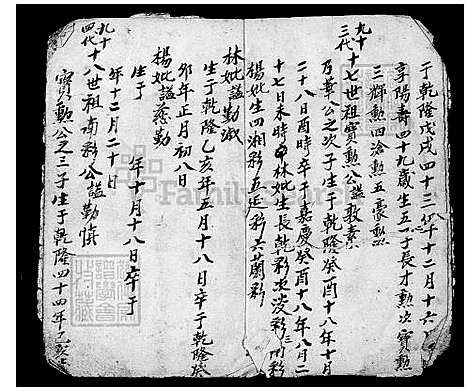 于乾隆戊戌四十三年十二月十六
享陽壽四十九歲生五子長才勳次寶勳
三輝勳四滄勳五豪勳
九十三代
十七世祖寶勳公諡敦素
乃華公之次子生于乾隆癸酉十八年十月
二十八日酉時卒于嘉慶癸酉十八年八月二
十七日未時林妣生長乾彩次凌彩三 彩
楊妣生四湘彩五廷彩六蘭彩
林妣諡勤淑
生于乾隆乙亥年五月十八日卒于乾隆
卯年正月初八日
楊妣諡慈勤
生于 年十月十八日卒于
年十二月二十日
九十四代
十八世祖南彩公諡勤慎
寶勳公之三子生于乾隆四十四年乙亥
FamilySearch